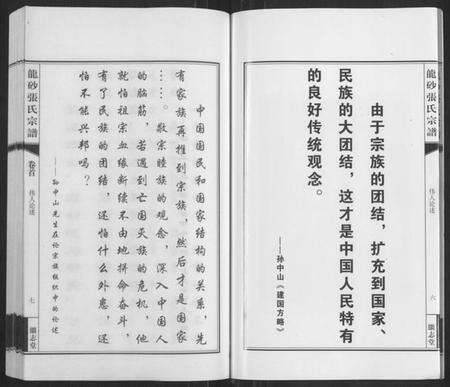 龍砂張氏宗譜
偉人论述
六
顯志堂
由于宗族的团结，扩充到国家、
民族的大团结，这才是中国人民特有
的良好传统观念。
——孙中山《建国方略》
中国国民和国家结构的关系，先
有家族再推到宗族，然后才是国家
……。敬宗睦族的观念，深入中国人
的脑筋，若遇到亡国灭族的危机，他
就怕祖宗血缘断续不由地拼命奋斗，
有了民族的团结，还怕什么外患，还
怕不能兴邦吗？
——孙中山先生在论宗族组织中的论述
龍砂張氏宗譜
卷首
偉人论述
七
顯志堂